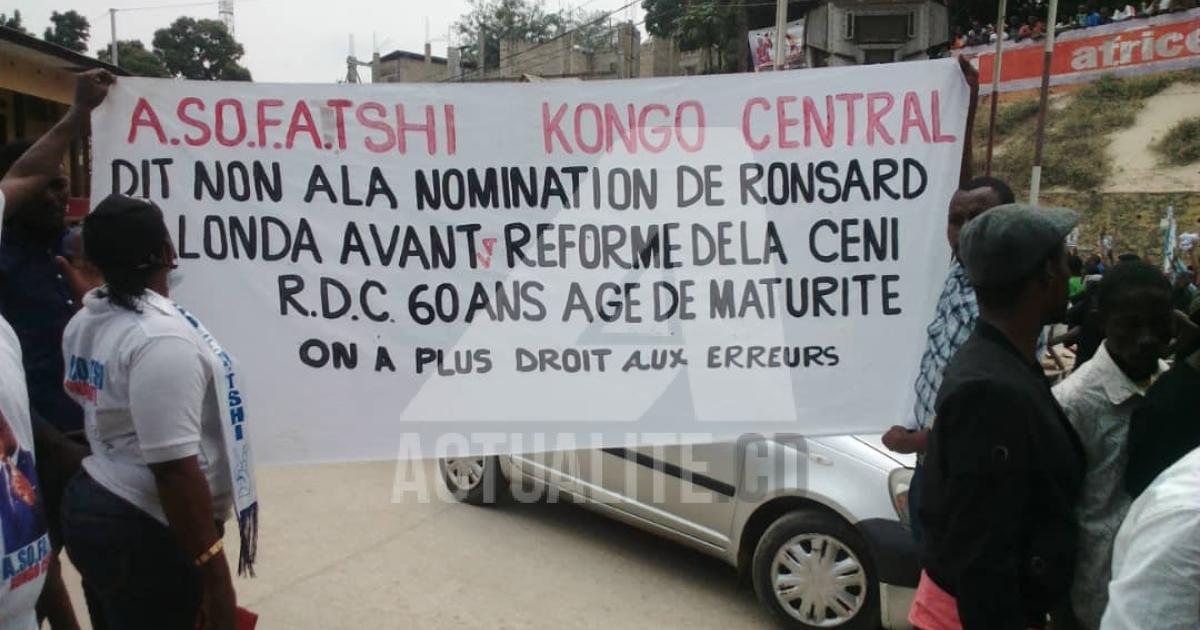 A.SO.F.A.TSHI KONGO CENTRAL
DIT NON ALA NOMINATION DE RONSARD
LONDA AVANT REFORME DE LA CENI
R.D.C. 60 ANS AGE DE MATURITE
ON A PLUS DROIT AUX ERREURS
ACTUALITE.CD
africe
A.SO.FA